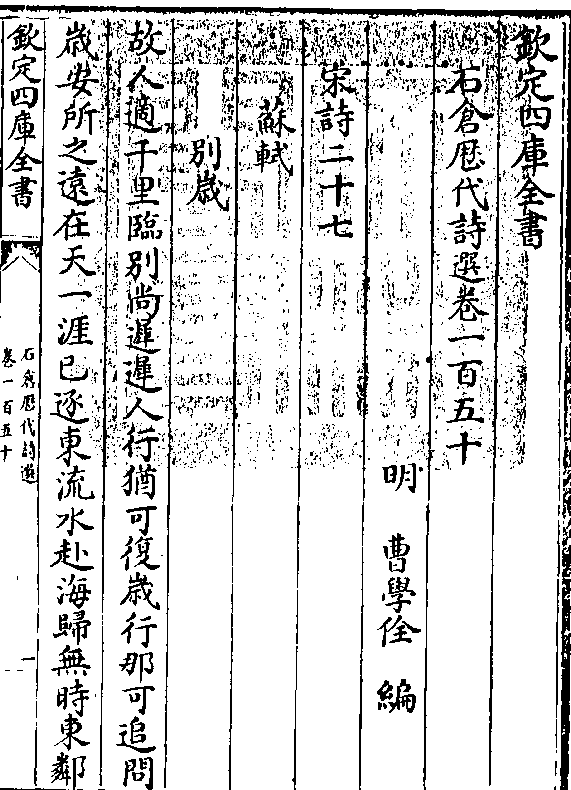 欽定四庫全書
石倉厯代詩選卷一百五十
明 曹學佺 編
宋詩二十七
蘇軾
别嵗
故人適千里臨别尚遲遲人行猶可復嵗行那可追問
嵗安所之遠在天一涯已逐東流水赴海歸無時東鄰
欽定四庫全書
石倉厯代詩選
卷一百五十
一